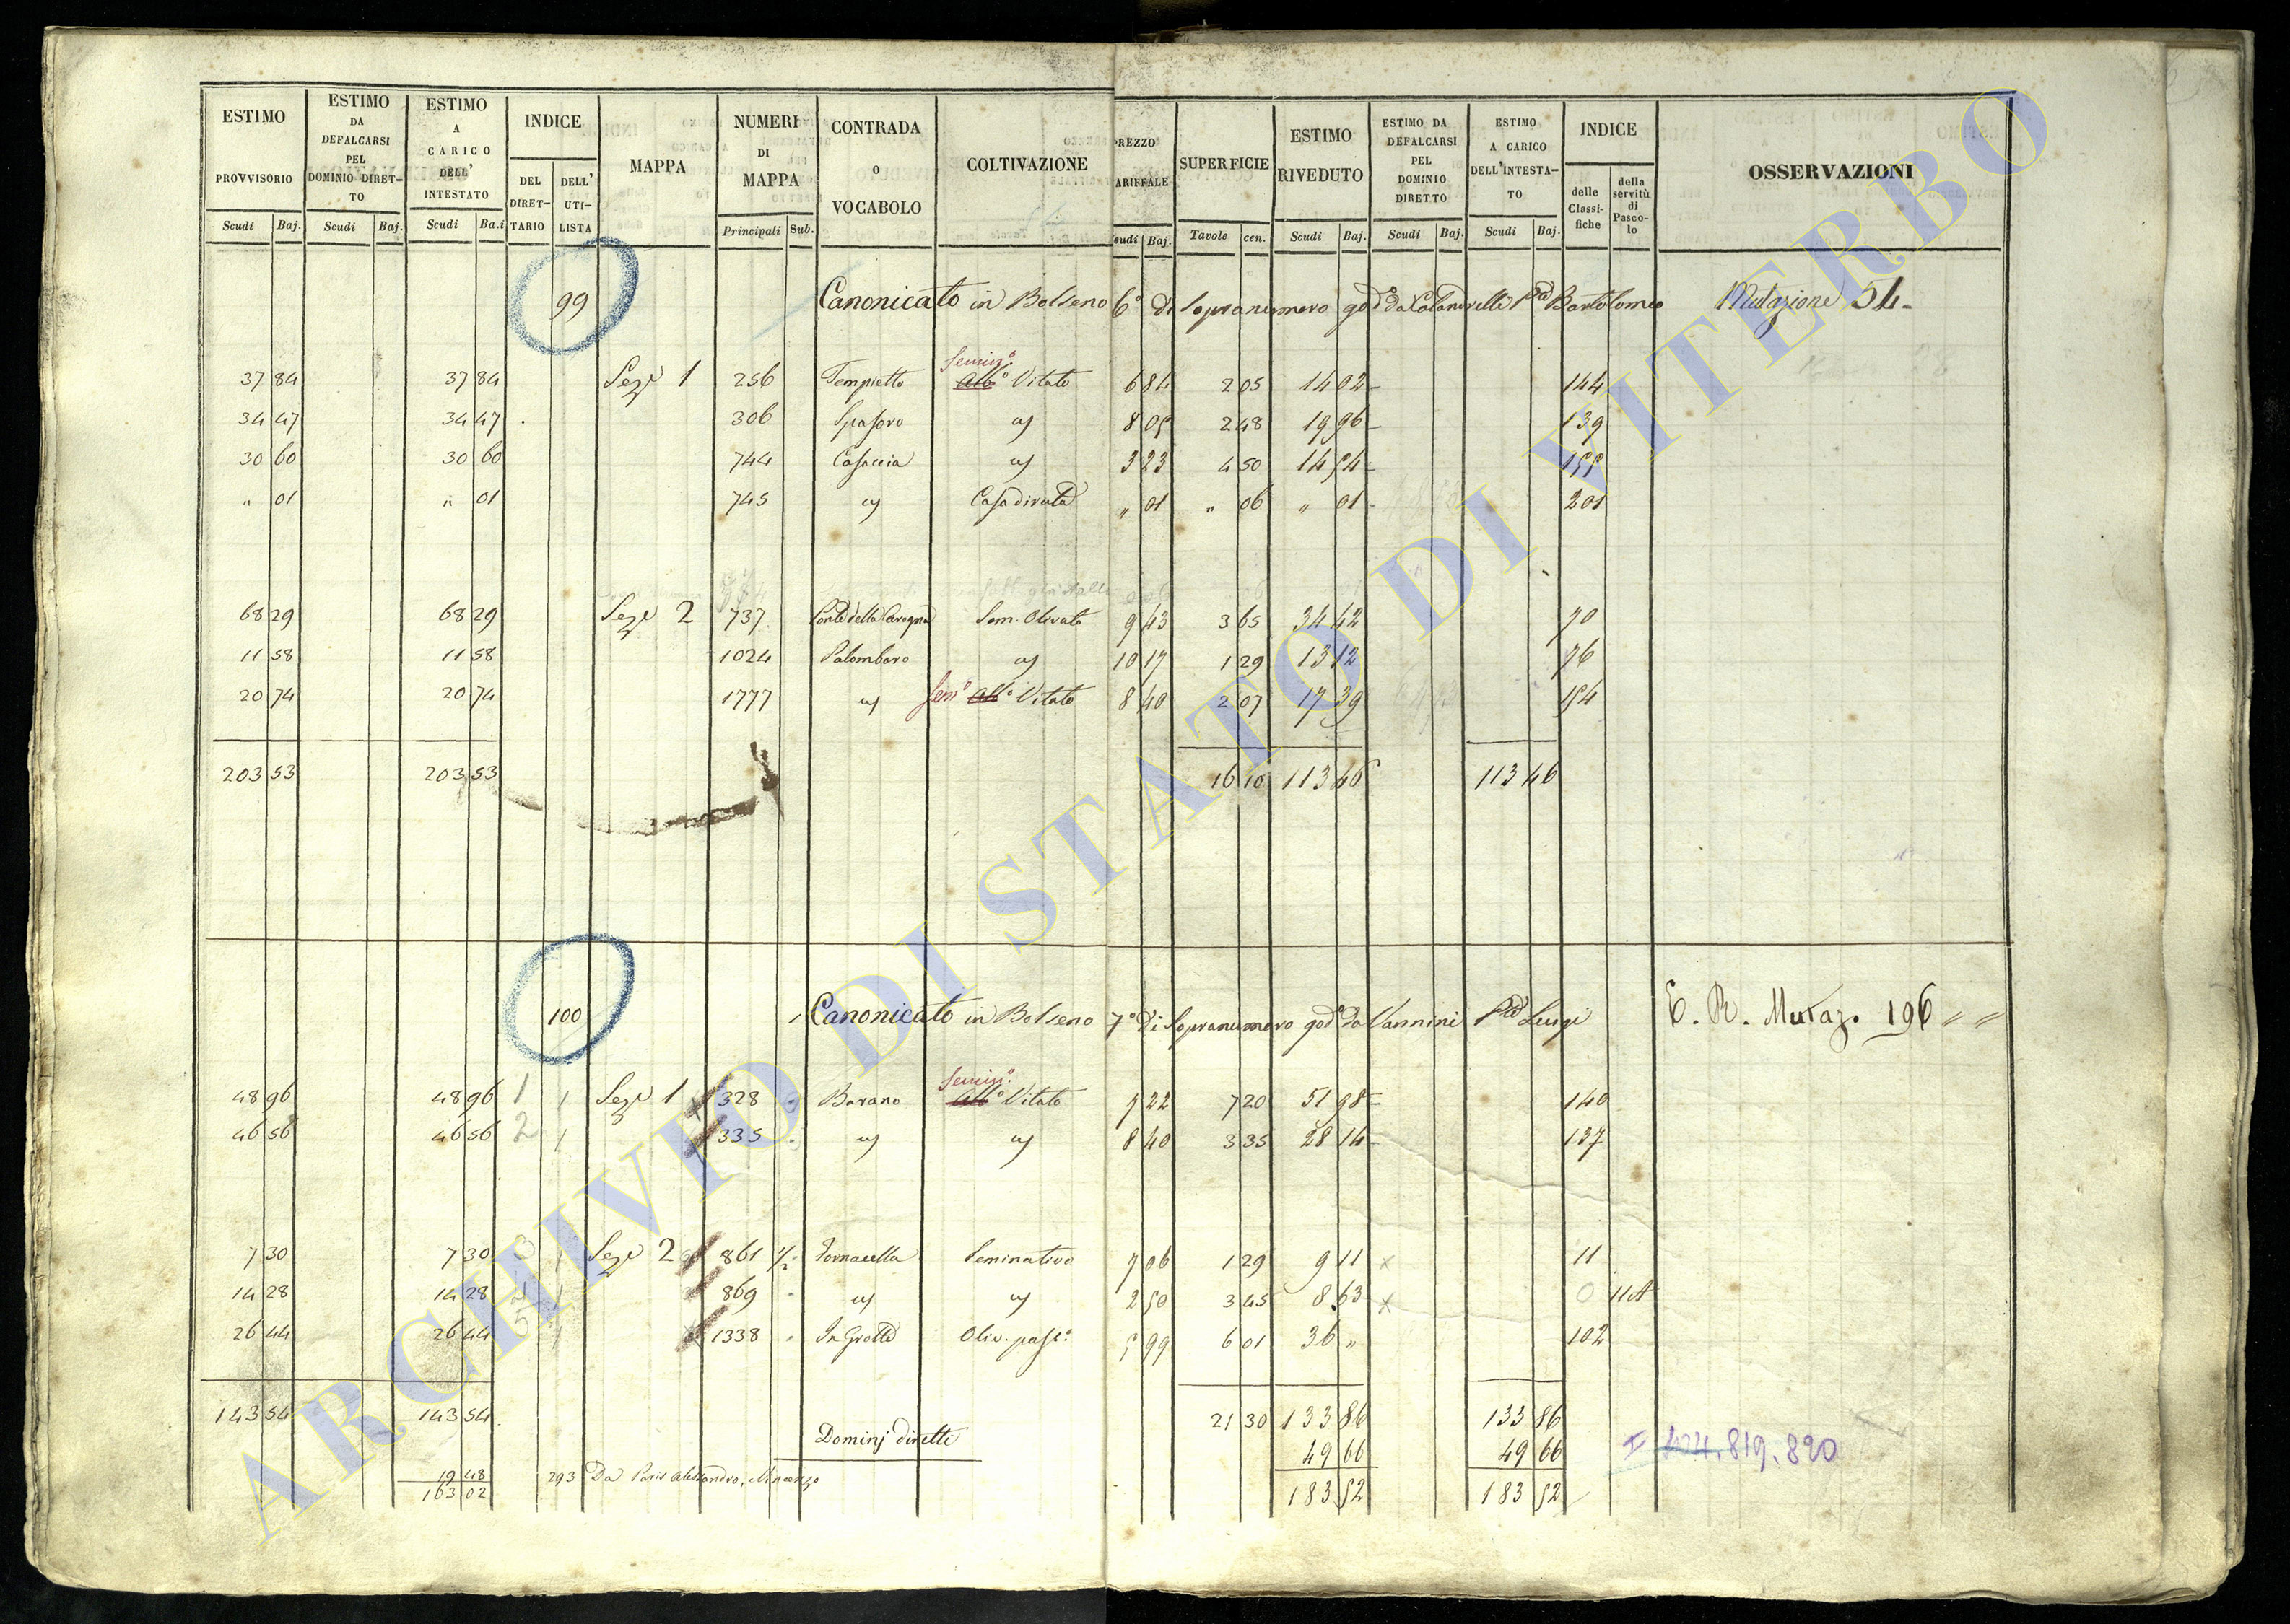 ESTIMO PROVVISORIO Scudi Baj.
ESTIMO DA DEFALCARSI PEL DOMINIO DIRET-TO Scudi Baj.
ESTIMO A CARICO DELL' INTESTATO Scudi Ba.i
INDICE DEL DIRET-TARIO DELL' UTI-LISTA
MAPPA
NUMERI DI MAPPA Principali Sub.
CONTRADA O VOCABOLO
COLTIVAZIONE
PREZZO ARIFFALE eudi Baj.
SUPERFICIE Tavole cen.
ESTIMO RIVEDUTO Scudi Baj.
ESTIMO DA DEFALCARSI PEL DOMINIO DIRETTO Scudi Baj.
ESTIMO A CARICO DELL'INTESTA-TO Scudi Baj.
INDICE delle Classi-fiche della servitù di Pasco-lo
OSSERVAZIONI
99 Canonicato in Bolseno 6° di Sopranumero god° da Calandrelli Bartolomeo Mutazione 54
Semin°
37 84 37 84 Sez. 1 256 Tempietto Alb° Vitato 6 84 2 05 14 02 144
34 47 34 47 306 Spasoro id 8 05 2 48 19 96 139
30 60 30 60 744 Casaccia id 3 23 4 50 14 54 155
" 01 " 01 745 id Casa diruta " 01 " 06 " 01 201
68 29 68 29 Sez. 2 737 Ponte della Carogna Sem. Olivato 9 43 3 65 34 42 70
11 58 11 58 1024 Palombaro id 10 17 1 29 13 12 76
20 74 20 74 1777 id Sem° Alb° Vitato 8 40 2 07 17 39 154
203 53 203 53 16 10 113 46 113 46
100 Canonicato in Bolseno 7° di Sopranumero god° da Vannini Luigi E. R. Mutaz. 196 " "
Semin°
48 96 48 96 1 1 Sez. 1 328 Barano Alb° Vitato 7 22 7 20 51 98 140
46 56 46 56 2 1 335 id id 8 40 3 35 28 14 137
7 30 7 30 3 1 Sez. 2 861 1/2 Fornacella Seminativo 7 06 1 29 9 11 x 11
14 28 14 28 1 869 id id 2 50 3 45 8 63 x 0 11A
26 44 26 44 5 1 1338 Le Grotte Oliv. past° 5 99 6 01 36 " 102
143 54 143 54 21 30 133 86 133 86
Dominj diretti 49 66 49 66 819. 820
19 48 293 Da Paris Alessandro, Vincenzo
163 02 183 52 183 52
ARCHIVIO DI STATO DI VITERBO